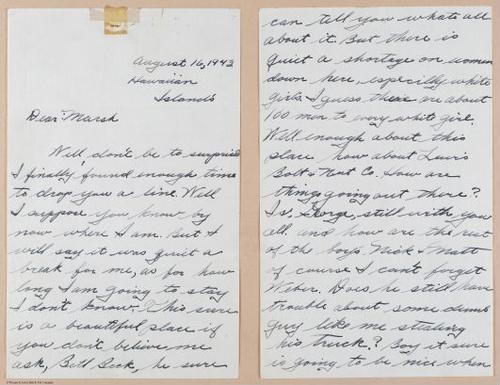 August 16, 1943
Hawaiian
Islands
Dear Marsh
Well don't be to surprised
I finally found enough time
to drop you a line. Well
I suppose you know by
now where I am. But I
will say it was quit a
break for me, as for how
long I am going to stay
I don't know. This sure
is a beautiful place if
you don't believe me
ask, Bill Beck, he sure
can tell you whats all
about it. But there is
quit a shortage on women
down here, especilly white
girls. I guess there are about
100 men to every white girl.
Well enough about this
place how about Lewis
Bolt & Nut Co. How are
things going out there?
Is George, still with you
all. and how are the rest
of the boys Nick & Matt
of course I can't forget
Weber. Does he still have
trouble about some dumb
guy like me stealing
his truck? Boy it sure
is going to be nice when